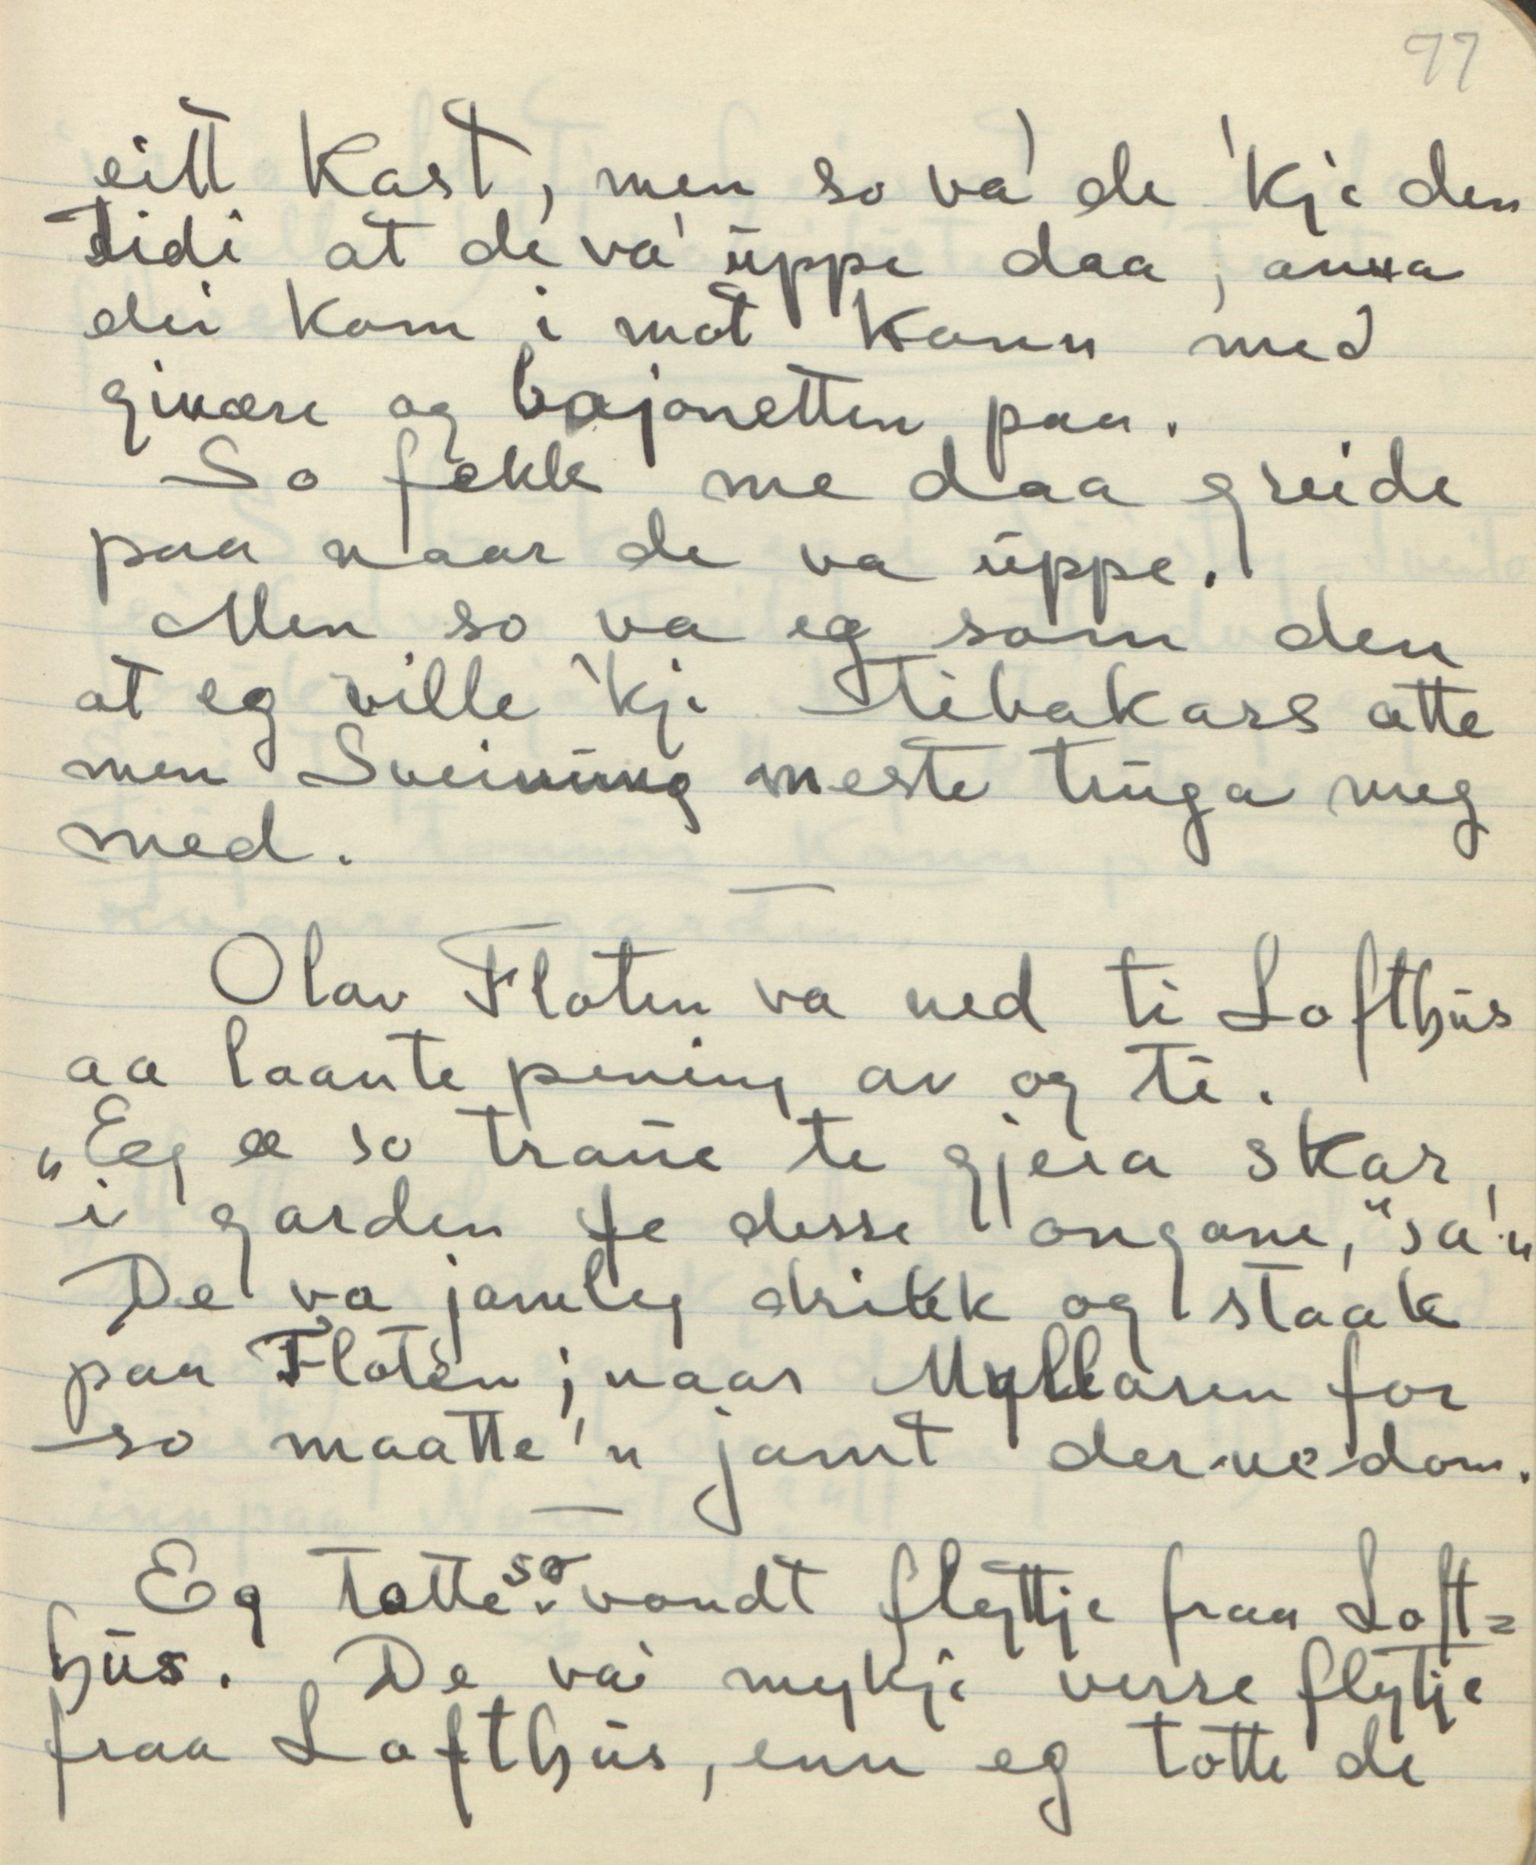 77
eitt Kast, men so va' de 'kje den
tidi at de va' uppe daa, anna
dei kom i mot konn med
givære og bajonetten paa.
So fekk me daa greide
paa naar de va uppe.
Men so va eg som den
at eg ville 'kje tibakars atte
men Sveinung meste truga meg
med.
Olav Floten va ned ti Lofthus
aa laante pening av og ti.
„Eg æ so traue te gjera skar,
i garden fe desse ongane," sa'n
De va jamleg drikk og staak
paa Floten; naar Myllaren for
so maatte 'n jamt der nedom.
Eg totte so vondt flyttje fraa Loft=
hus. De va mykje verre flytje
fraa Lofthus, enn eg totte de